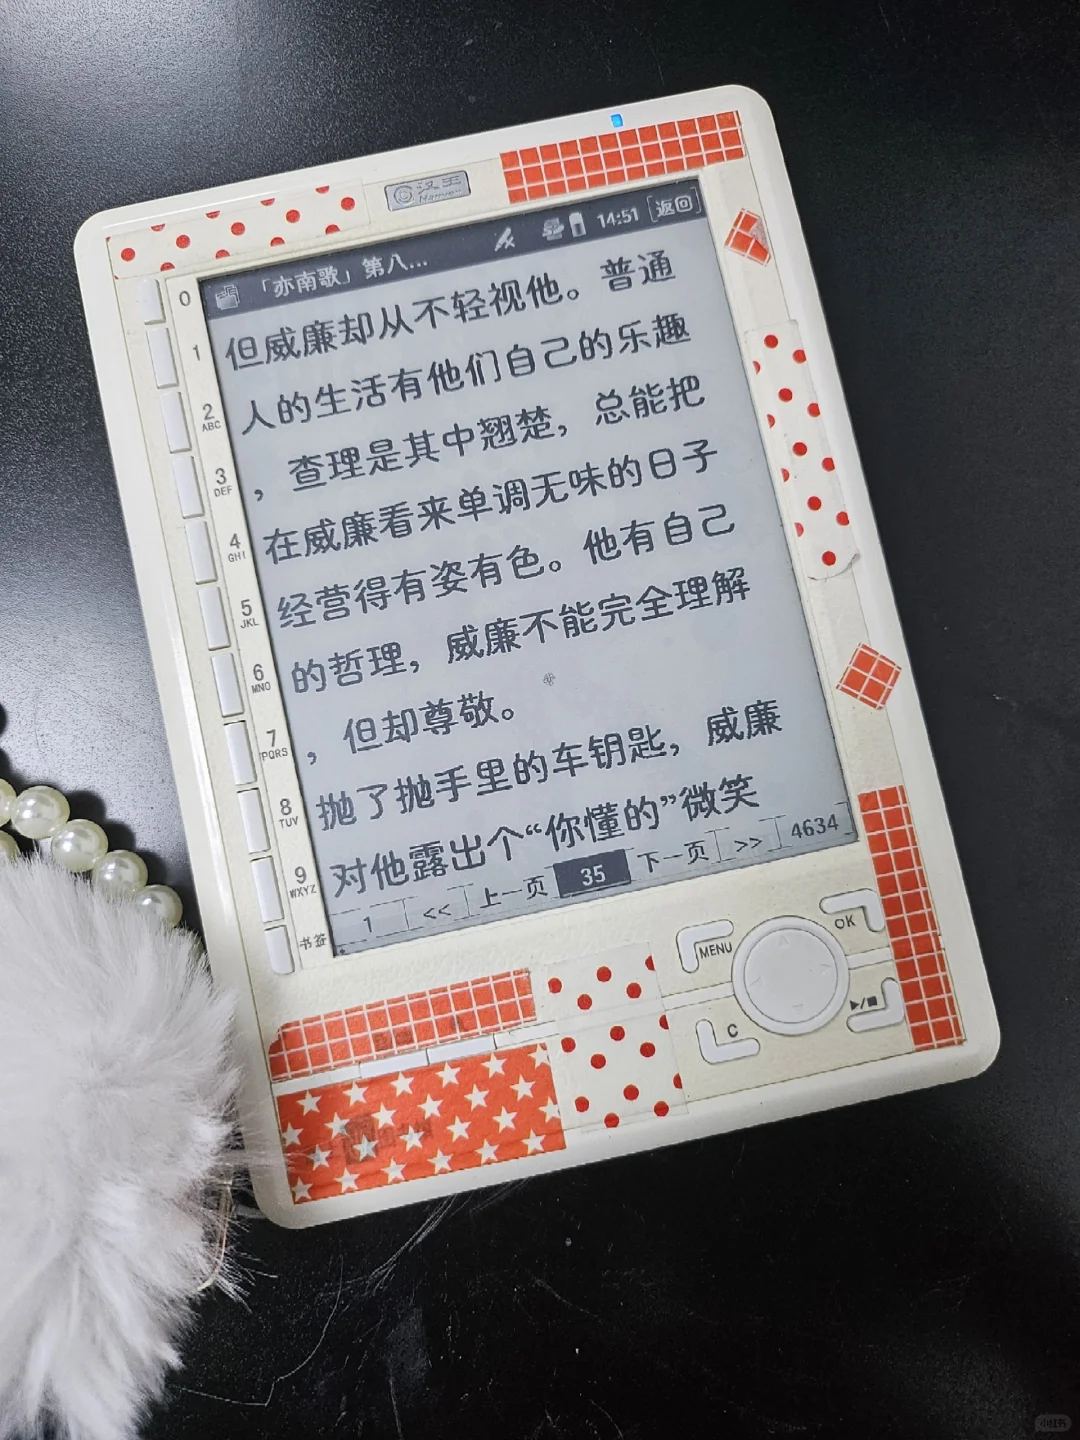 汉王
Hanvon
「亦南歌」第八... 14:51 返回
但威廉却从不轻视他。普通
人的生活有他们自己的乐趣
，查理是其中翘楚，总能把
在威廉看来单调无味的日子
经营得有姿有色。他有自己
的哲理，威廉不能完全理解
，但却尊敬。
抛了抛手里的车钥匙，威廉
对他露出个“你懂的”微笑
1 << 上一页 35 下一页 >> 4634
0
1
2 ABC
3 DEF
4 GHI
5 JKL
6 MNO
7 PQRS
8 TUV
9 WXYZ
书签
MENU
OK
C
▶/■
小红书